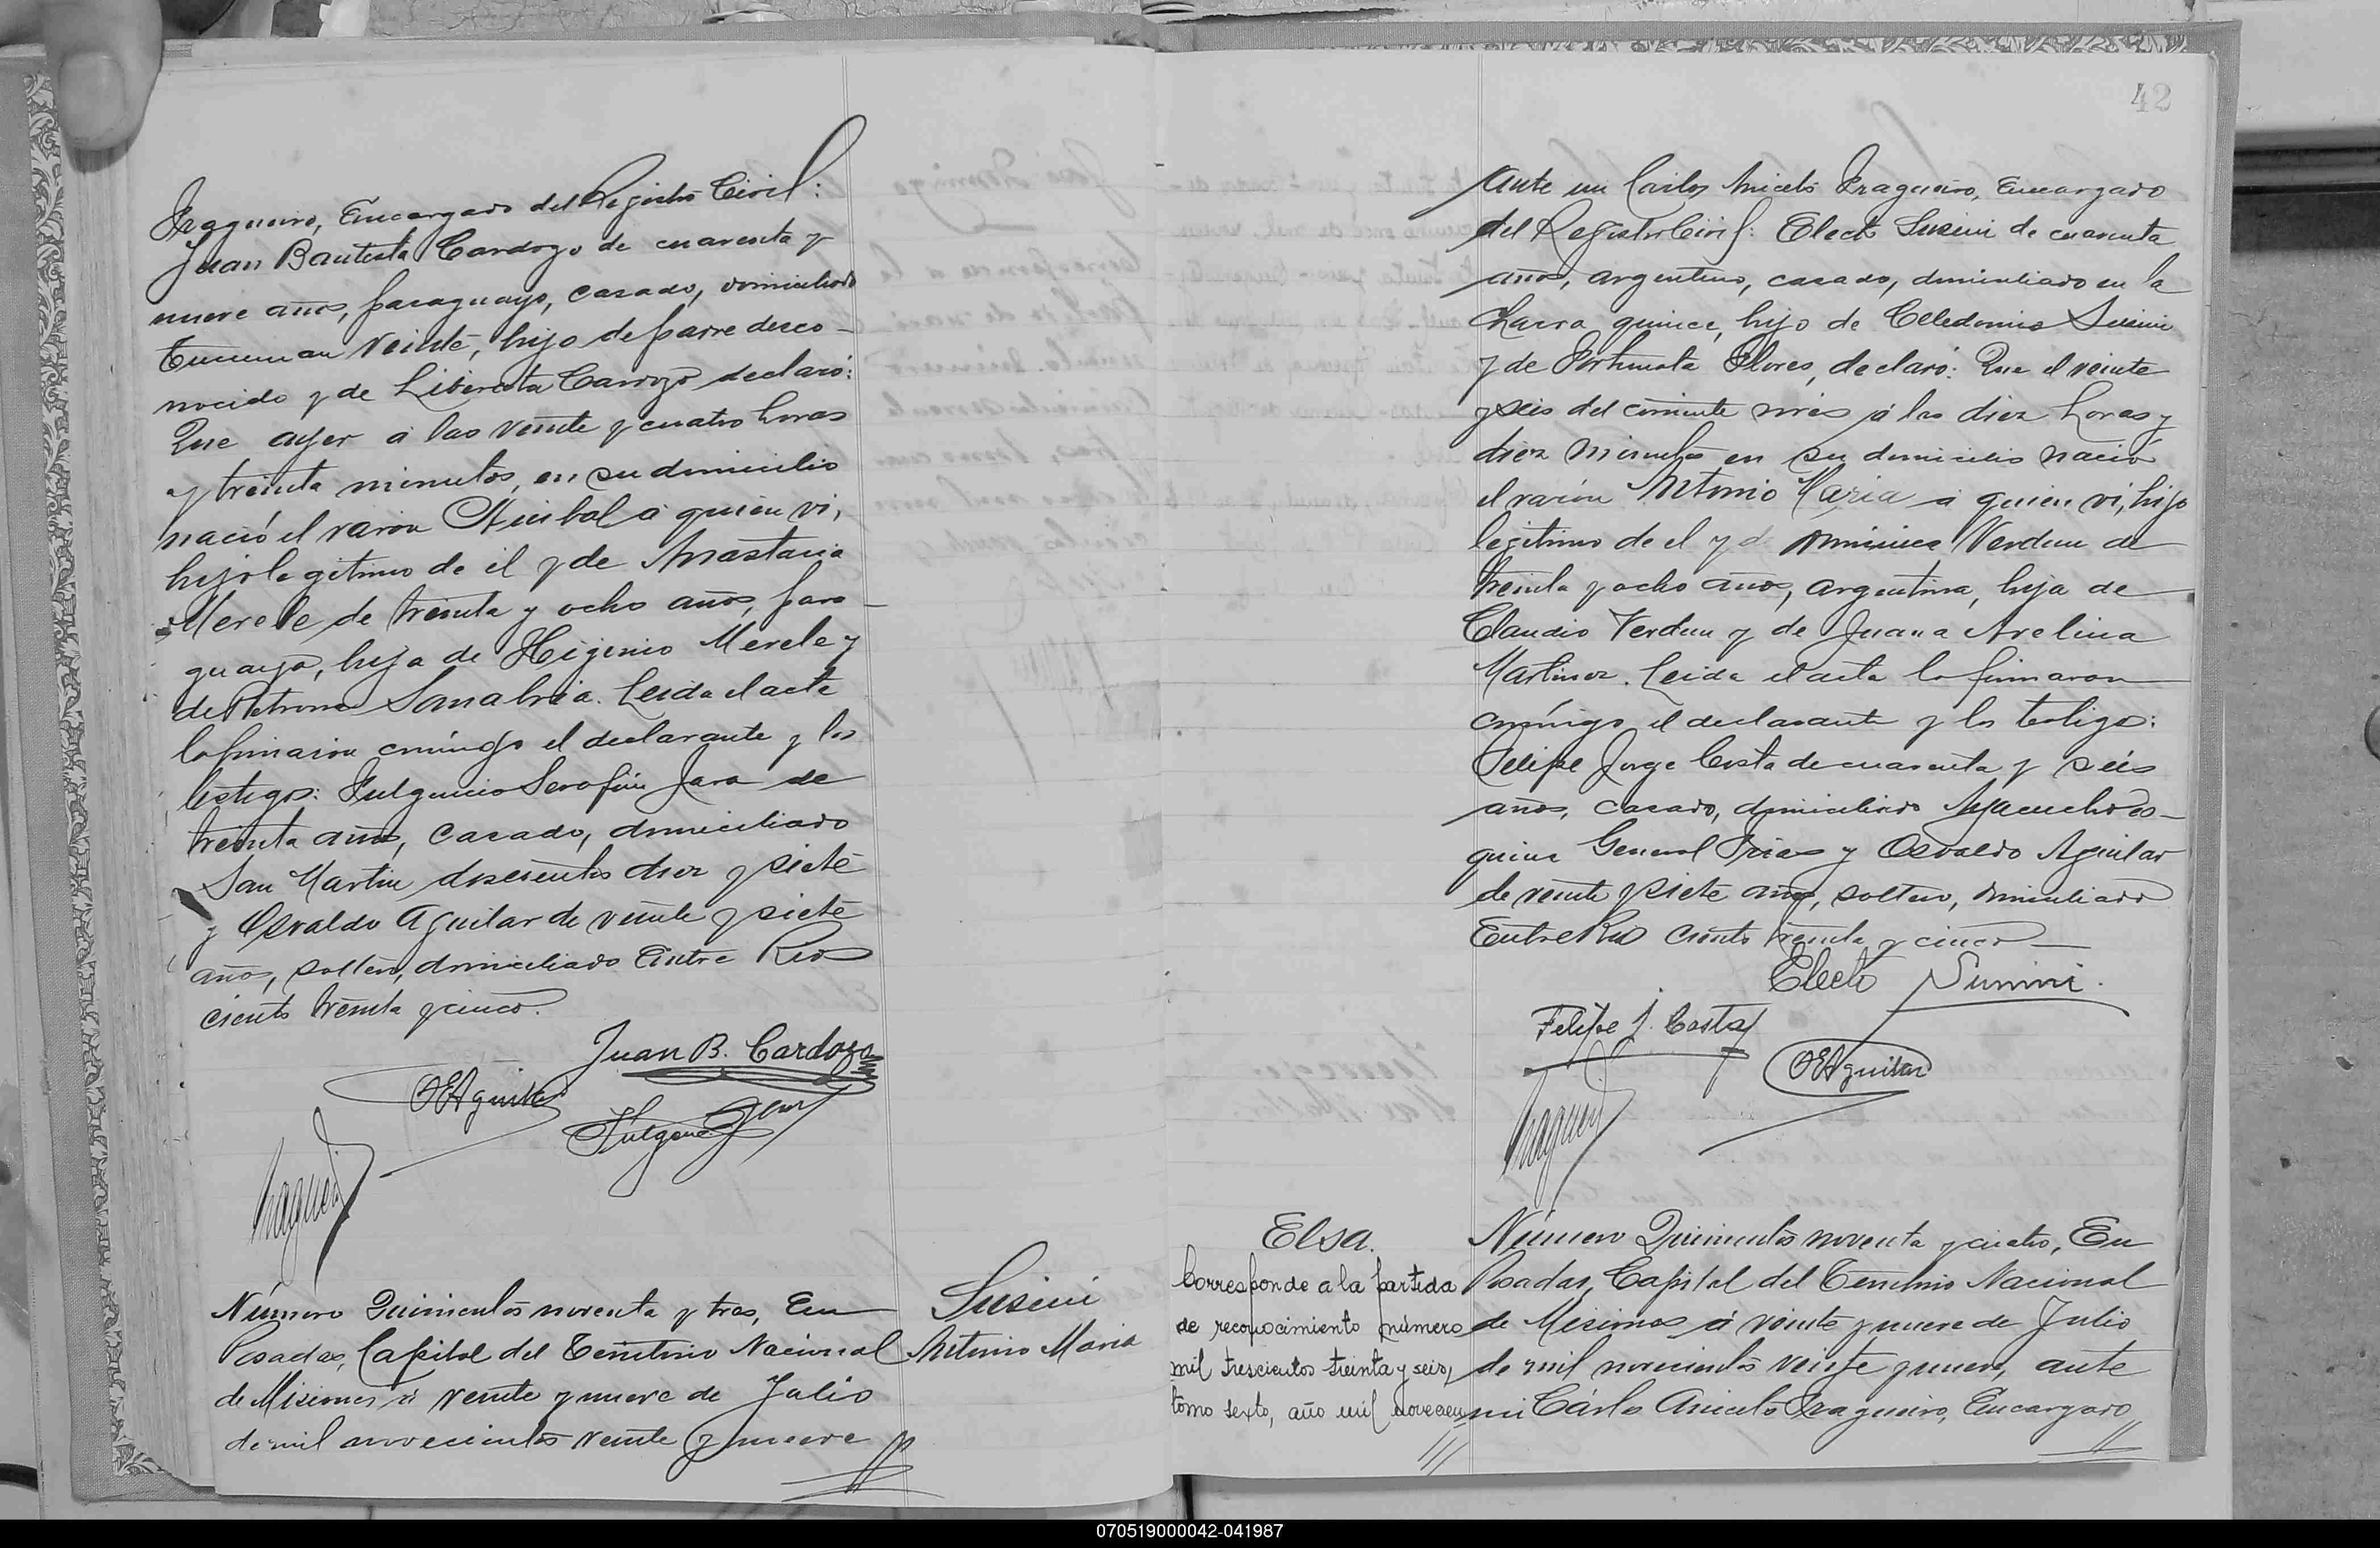 Fragueiro, Encargado del Registro Civil:
Juan Bautista Cardozo de cuarenta y
nueve años, paraguayo, casado, domiciliado
Tucuman veinte, hijo de padre desco-
nocido y de Liberata Cardozo declaró:
Que ayer á las veinte y cuatro horas
y treinta minutos, en su domicilio
nació el varon Anibal a quien vi,
hijo legitimo de él y de Anastacia
Merele de treinta y ocho años, para-
guaya, hija de Higinio Merele y
de Petrona Sanabria. Leida el acta
la firmaron conmigo el declarante y los
testigos: Fulgencio Serafin Jara de
treinta años, casado, domiciliado
San Martin doscientos diez y siete
y Osvaldo Aguilar de veinte y siete
años, soltero, domiciliado Entre Rios
ciento treinta y cinco.
Juan B. Cardozo
OEAguilar
Fulgencio Jara
Fragueiro
Número Quinientos noventa y tres, En
Posadas, Capital del Territorio Nacional
de Misiones á veinte y nueve de Julio
de mil novecientos veinte y nueve
Susini
Antonio Maria
42
Ante mi Carlos Aniceto Fragueiro, Encargado
del Registro Civil: Electo Susini de cuarenta
años, argentino, casado, domiciliado en la
Chacra quince, hijo de Celedonio Susini
y de Fortunata Flores, declaró: Que el veinte
y seis del corriente mes á las diez horas y
diez minutos en su domicilio nació
el varon Antonio Maria a quien vi, hijo
legitimo de el y de Verdun de
treinta y ocho años, argentina, hija de
Claudio Verdun y de Juana Avelina
Martinez. Leida el acta la firmaron
conmigo el declarante y los testigos:
Felipe Jorge Costa de cuarenta y seis
años, casado, domiciliado Ayacucho es-
quina General Frias y Osvaldo Aguilar
de veinte y siete años, soltero, domiciliado
Entre Rios ciento treinta y cinco
Electo Susini.
Felipe J. Costa
OEAguilar
Fragueiro
Elsa.
Corresponde a la partida
de reconocimiento número
mil trescientos treinta y seis,
tomo sexto, año mil novecien
Número Quinientos noventa y cuatro, En
Posadas, Capital del Territorio Nacional
de Misiones á veinte y nueve de Julio
de mil novecientos veinte y nueve, ante
mi Cárlos Aniceto Fragueiro, Encargado
070519000042-041987